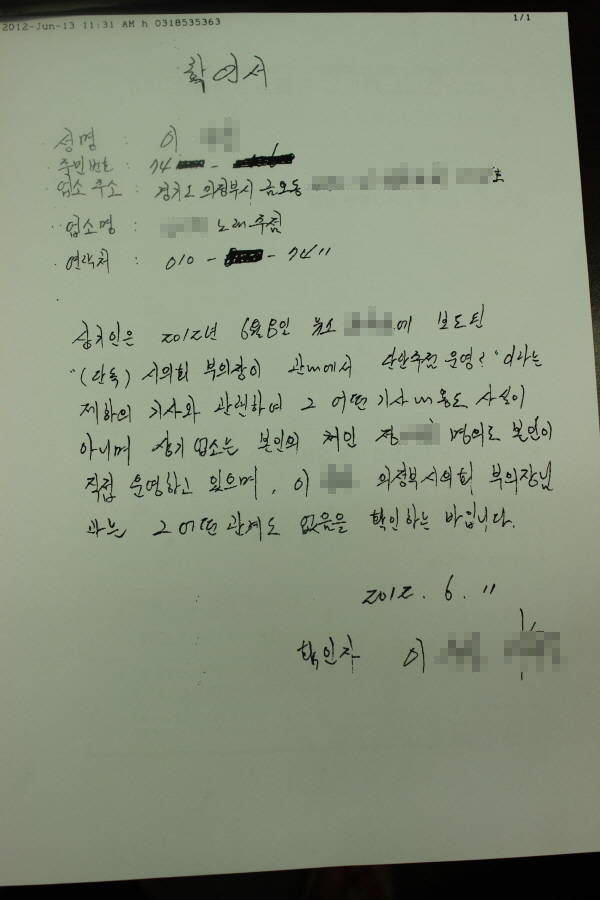 2012-Jun-13 11:31 AM h 0318535363 1/1
확인서
성명 : 이
주민번호 : 74 -
업소 주소 : 경기도 의정부시 금오동 호
업소명 : 노래주점
연락처 : 010 - - 7411
상기인은 2012년 6월8일 뉴스 에 보도된
"(단독) 시의회 부의장이 관내에서 단란주점 운영?" 이라는
제하의 기사와 관련하여 그 어떤 기사 내용도 사실이
아니며 상기 업소는 본인의 처인 정 명의로 본인이
직접 운영하고 있으며, 이 의정부시의회 부의장님
과는 그 어떤 관계도 없음을 확인하는 바입니다.
2012. 6. 11
확인자 이